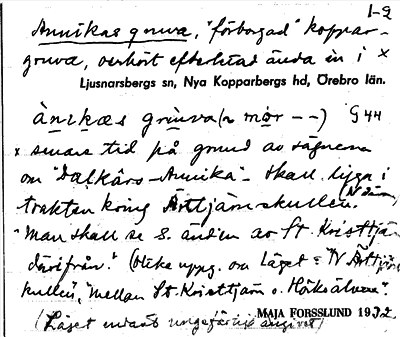 1-2
Annikas gruva, "förborgad" koppar-
gruva, oerhört eftersökt ända in i ×
Ljusnarsbergs sn, Nya Kopparbergs hd, Örebro län.
ànikas grùva (n mor - -) G 44
× senare tid på grund av sägnerna
om "Dalkårs-Annika". Skall ligga i
trakten kring Ärttjärnskullen.
"Man skall se S. ändan av St. Kristtjärn
därifrån." (Olika uppg. om läget = "N Ärttjärns
kullen", "mellan St. Kristtjärn o. Höksälven".
MAJA FORSSLUND 1932
(Läget endast ungefärligt angivet)